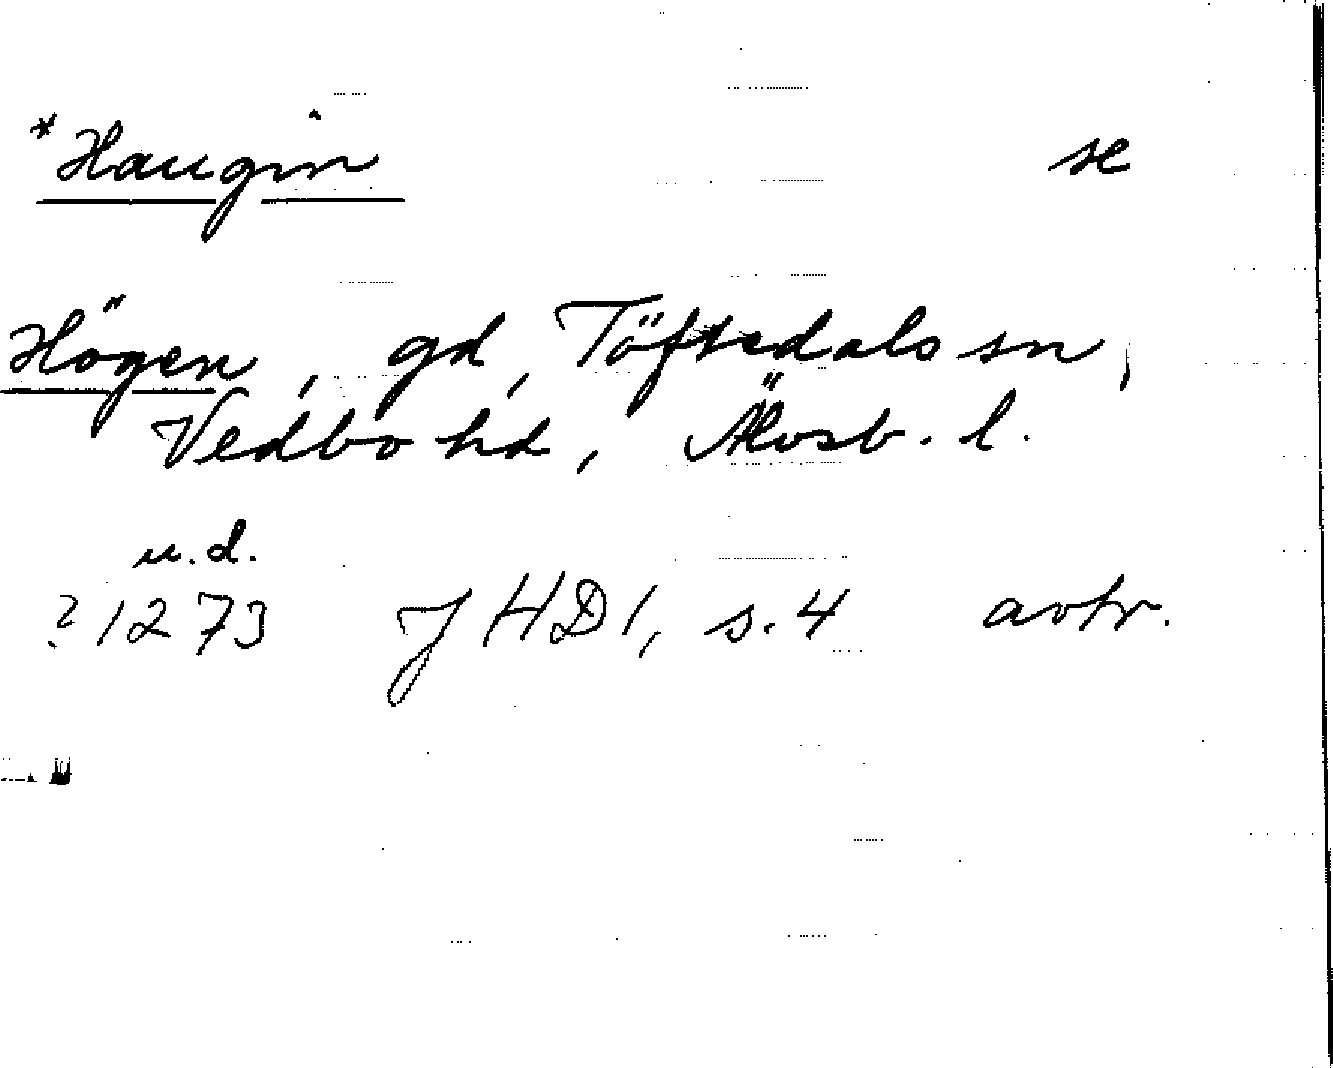 *Haugin se
Högen, gd, Töftedals sn,
Vedbo hd, Älvsb. l.
u.d.
?1273 JHD 1, s. 4 avtr.